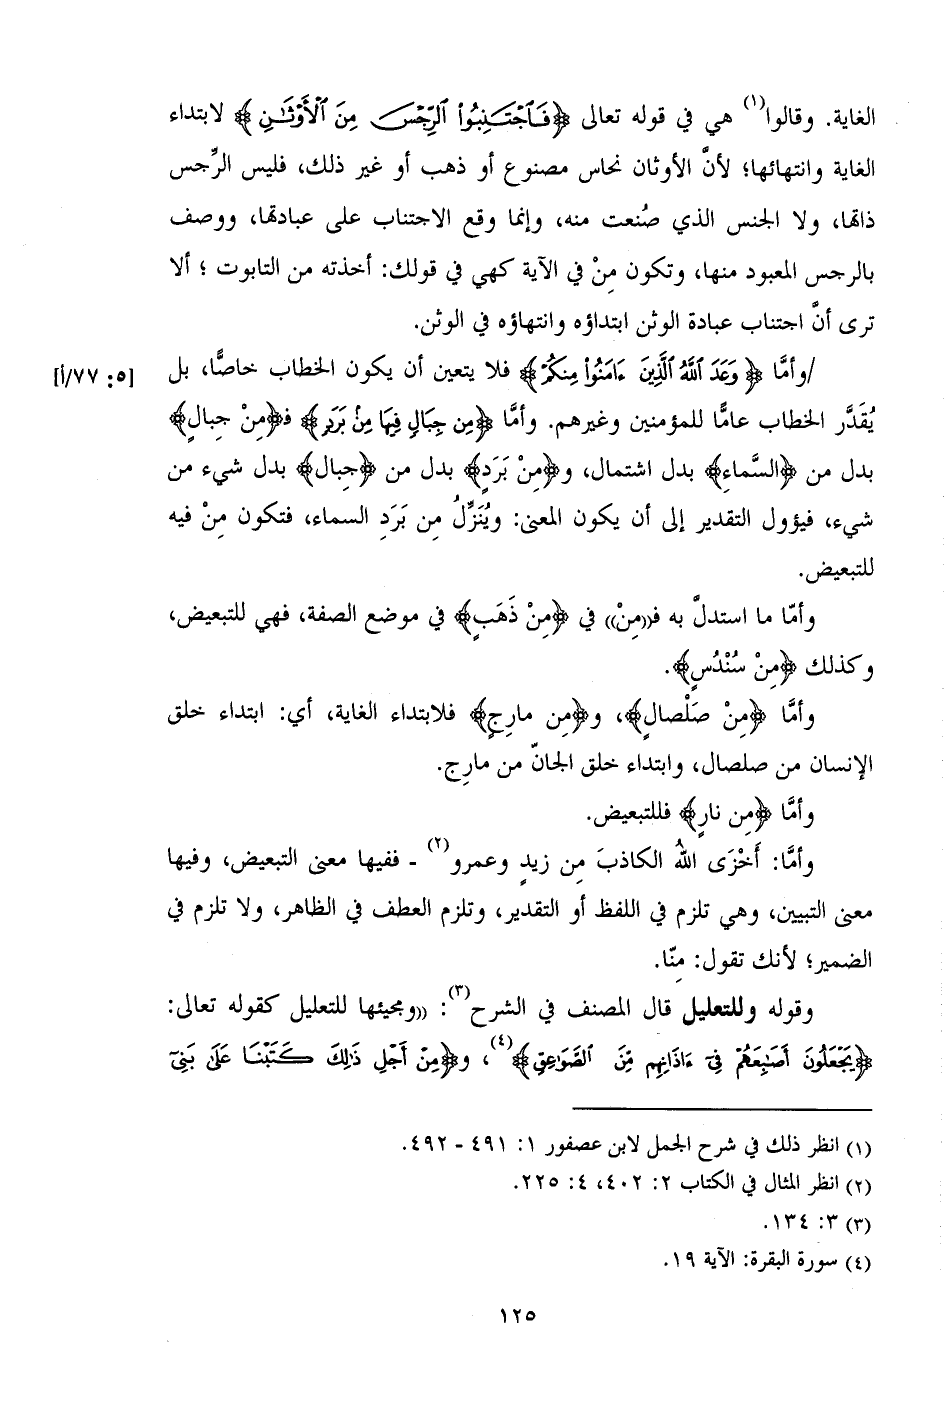 الغاية. وقالوا(١) هي في قوله تعالى ﴿فَٱجۡتَنِبُواْ ٱلرِّجۡسَ مِنَ ٱلۡأَوۡثَٰنِ﴾ لابتداء
الغاية وانتهائها؛ لأنَّ الأوثان نحاس مصنوع أو ذهب أو غير ذلك، فليس الرِّجس
ذاتها، ولا الجنس الذي صُنعت منه، وإنما وقع الاجتناب على عبادتها، ووصف
بالرجس المعبود منها، وتكون مِنْ في الآية كهي في قولك: أخذته من التابوت ؛ ألا
ترى أنَّ اجتناب عبادة الوثن ابتداؤه وانتهاؤه في الوثن.
/وأمَّا ﴿وَعَدَ ٱللَّهُ ٱلَّذِينَ ءَامَنُواْ مِنكُمۡ﴾ فلا يتعين أن يكون الخطاب خاصًّا، بل [٥: ٧٧/أ]
يُقَدَّر الخطاب عامًّا للمؤمنين وغيرهم. وأمَّا ﴿مِن جِبَالٖ فِيهَا مِنۢ بَرَدٖ﴾ فـ﴿مِنْ جِبالٍ﴾
بدل من ﴿السَّماءِ﴾ بدل اشتمال، و﴿مِنْ بَرَدٍ﴾ بدل من ﴿جِبال﴾ بدل شيء من
شيء، فيؤول التقدير إلى أن يكون المعنى: ويُنَزِّلُ مِن بَرَدِ السماء، فتكون مِنْ فيه
للتبعيض.
وأمّا ما استدلَّ به فـ((مِنْ)) في ﴿مِنْ ذَهَبٍ﴾ في موضع الصفة، فهي للتبعيض،
وكذلك ﴿مِنْ سُنْدُسٍ﴾.
وأمَّا ﴿مِنْ صَلْصالٍ﴾، و﴿مِن مارِجٍ﴾ فلابتداء الغاية، أي: ابتداء خلق
الإنسان من صلصال، وابتداء خلق الجانّ من مارِج.
وأمَّا ﴿مِن نارٍ﴾ فللتبعيض.
وأمَّا: أَخْزَى اللهُ الكاذبَ مِن زيدٍ وعمرو(٢) ـ ففيها معنى التبعيض، وفيها
معنى التبيين، وهي تلزم في اللفظ أو التقدير، وتلزم العطف في الظاهر، ولا تلزم في
الضمير؛ لأنك تقول: مِنّا.
وقوله وللتعليل قال المصنف في الشرح(٣): ((ومجيئها للتعليل كقوله تعالى:
﴿يَجۡعَلُونَ أَصَٰبِعَهُمۡ فِيٓ ءَاذَانِهِم مِّنَ ٱلصَّوَٰعِقِ﴾(٤)، و﴿مِنۡ أَجۡلِ ذَٰلِكَ كَتَبۡنَا عَلَىٰ بَنِيٓ
(١) انظر ذلك في شرح الجمل لابن عصفور ١: ٤٩١ - ٤٩٢.
(٢) انظر المثال في الكتاب ٢: ٤٠٢، ٤: ٢٢٥.
(٣) ٣: ١٣٤.
(٤) سورة البقرة: الآية ١٩.
١٢٥